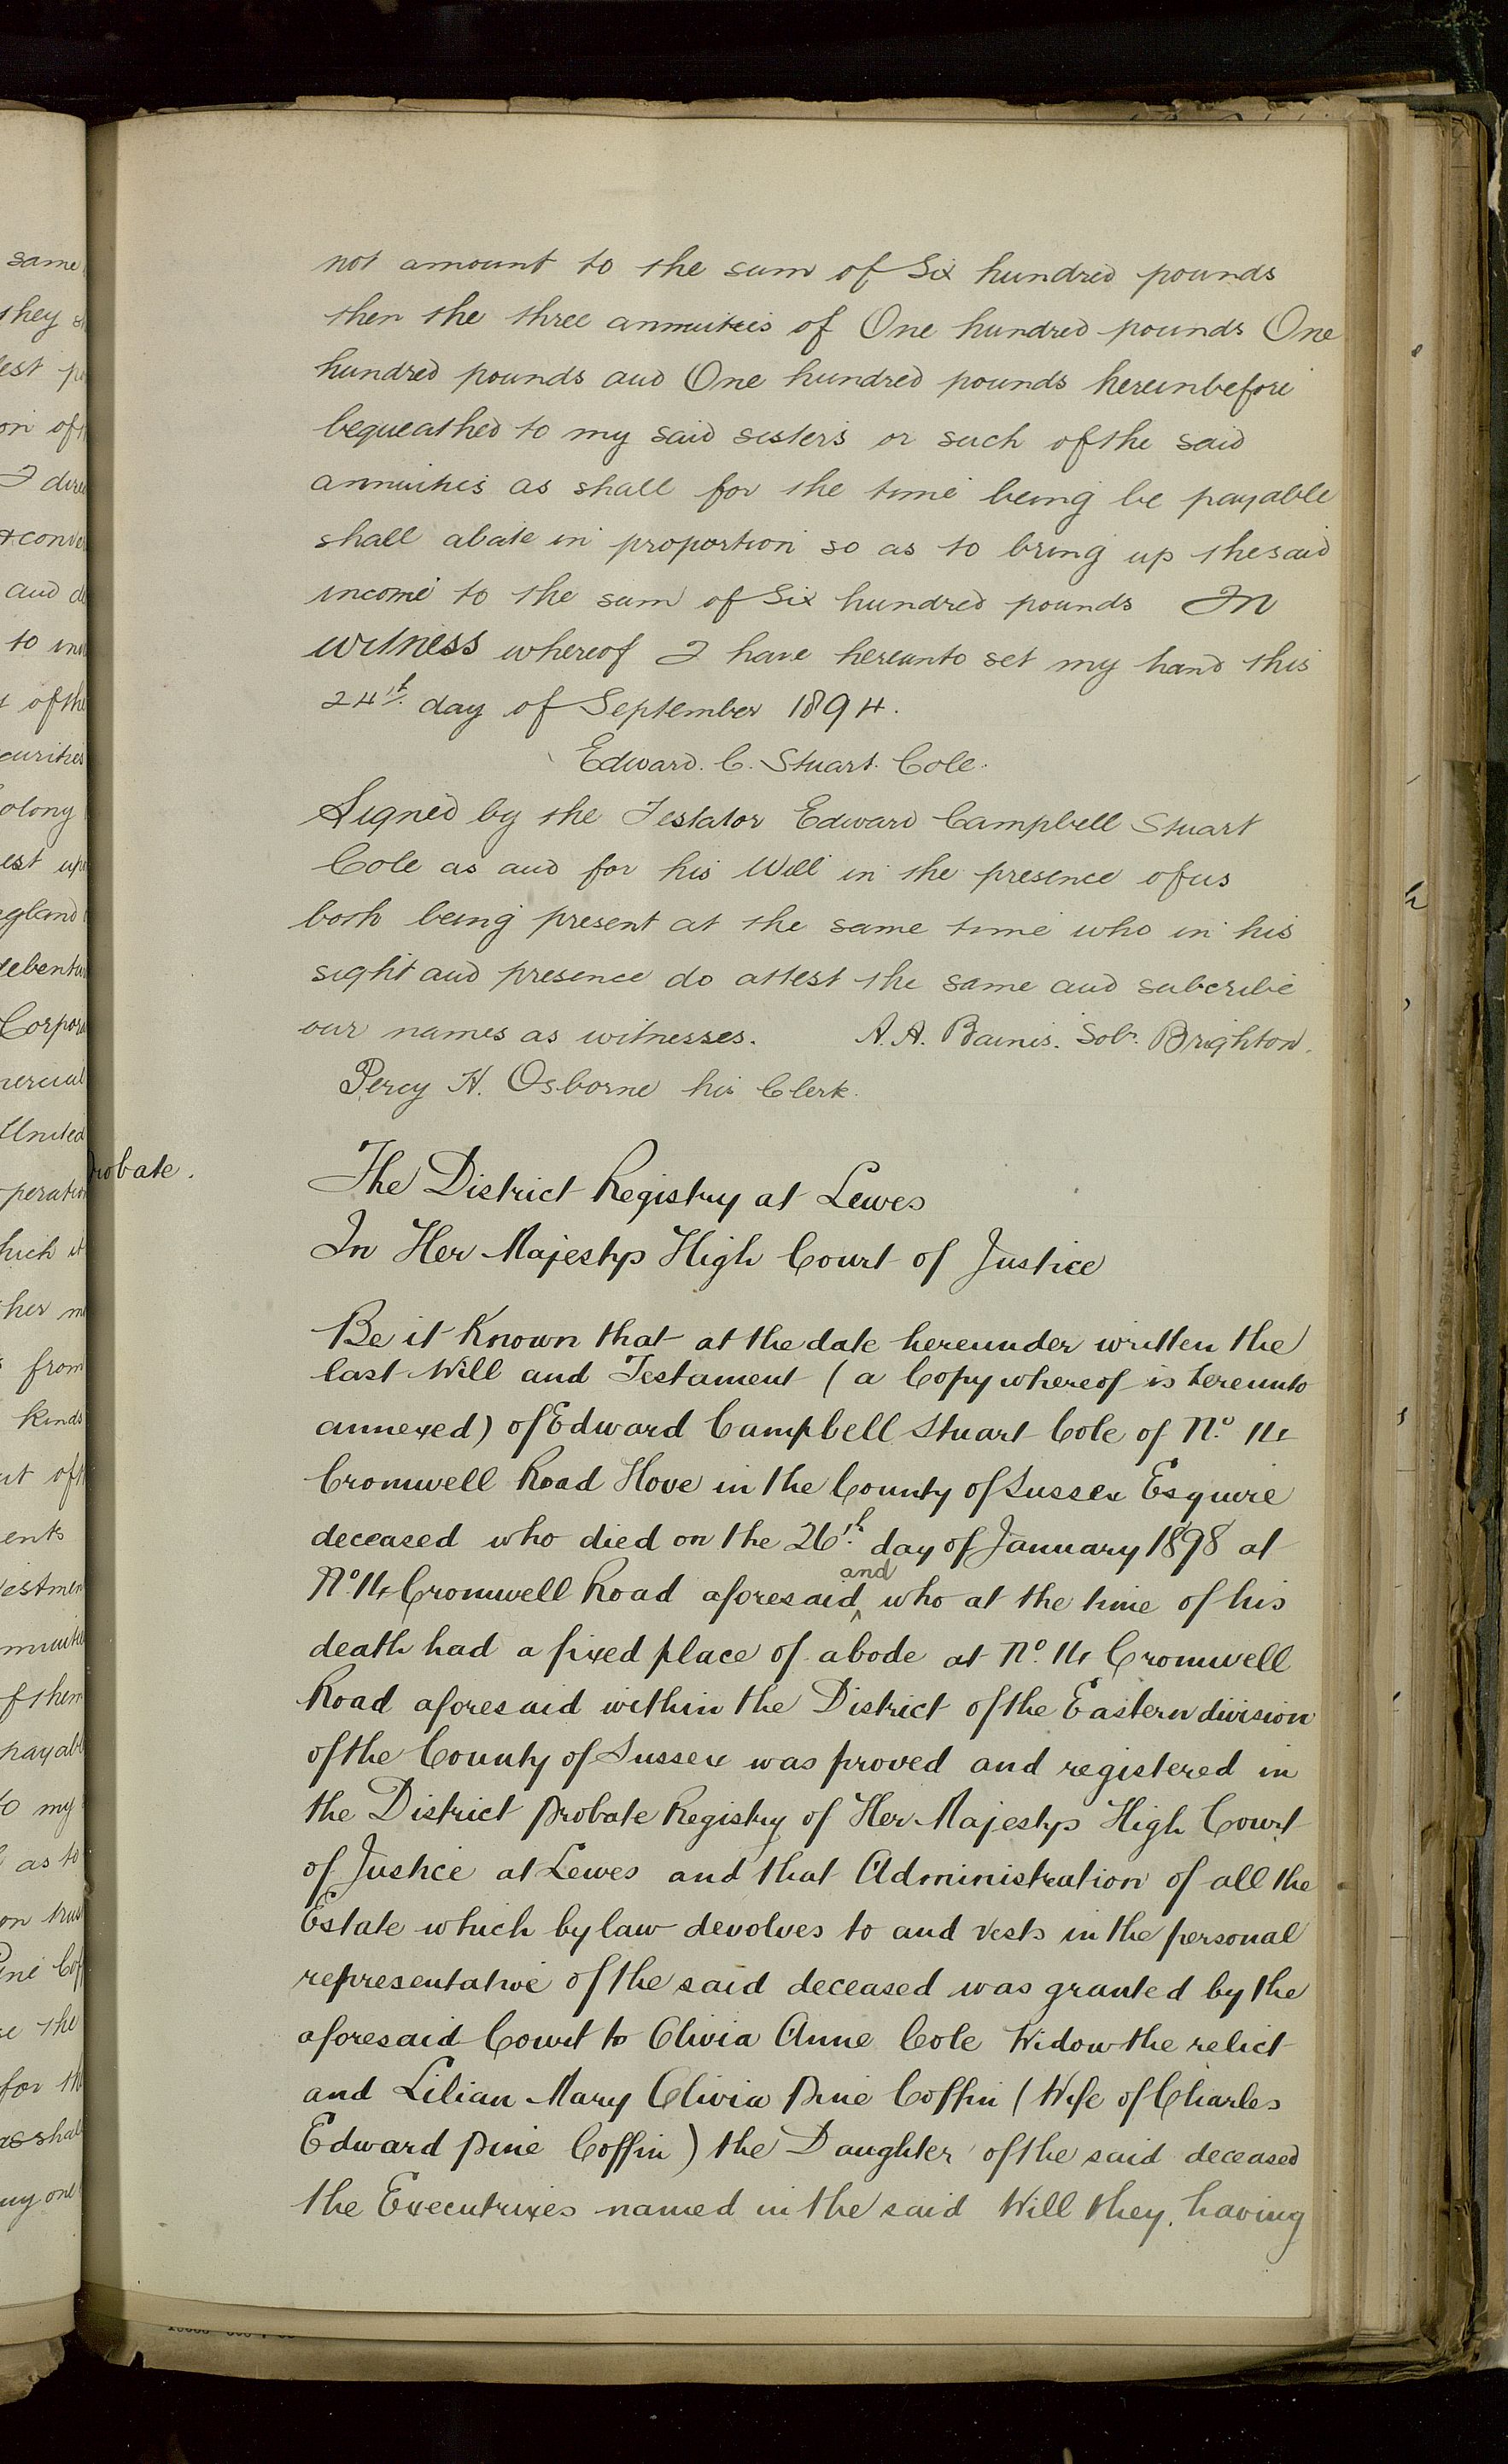 not amount to the sum of Six hundred pounds
then the three annuities of One hundred pounds One
hundred pounds and One hundred pounds hereinbefore
bequeathed to my said sisters or such of the said
annuities as shall for the time being be payable
shall abate in proportion so as to bring up the said
income to the sum of Six hundred pounds In
witness whereof I have hereunto set my hand this
24th. day of September 1894.
Edward. C. Stuart. Cole.
Signed by the Testator Edward Campbell Stuart
Cole as and for his Will in the presence of us
both being present at the same time who in his
sight and presence do attest the same and subcribe
our names as witnesses. A. A. Baines. Solr. Brighton.
Percy H. Osborne his Clerk.
Probate.
The District Registry at Lewes
In Her Majestys High Court of Justice
Be it Known that at the date hereunder written the
last Will and Testament (a Copy whereof is hereunto
annexed) of Edward Campbell Stuart Cole of No. 14
Cromwell Road Hove in the County of Sussex Esquire
deceased who died on the 26th. day of January 1898 at
No. 14 Cromwell Road aforesaid and who at the time of his
death had a fixed place of abode at No. 14 Cromwell
Road aforesaid within the District of the Eastern division
of the County of Sussex was proved and registered in
the District Probate Registry of Her Majestys High Court
of Justice at Lewes and that Administration of all the
Estate which by law devolves to and vests in the personal
representative of the said deceased was granted by the
aforesaid Court to Olivia Anne Cole Widow the relict
and Lilian Mary Olivia Pine Coffin (Wife of Charles
Edward Pine Coffin) the Daughter of the said deceased
the Executrixes named in the said Will they having